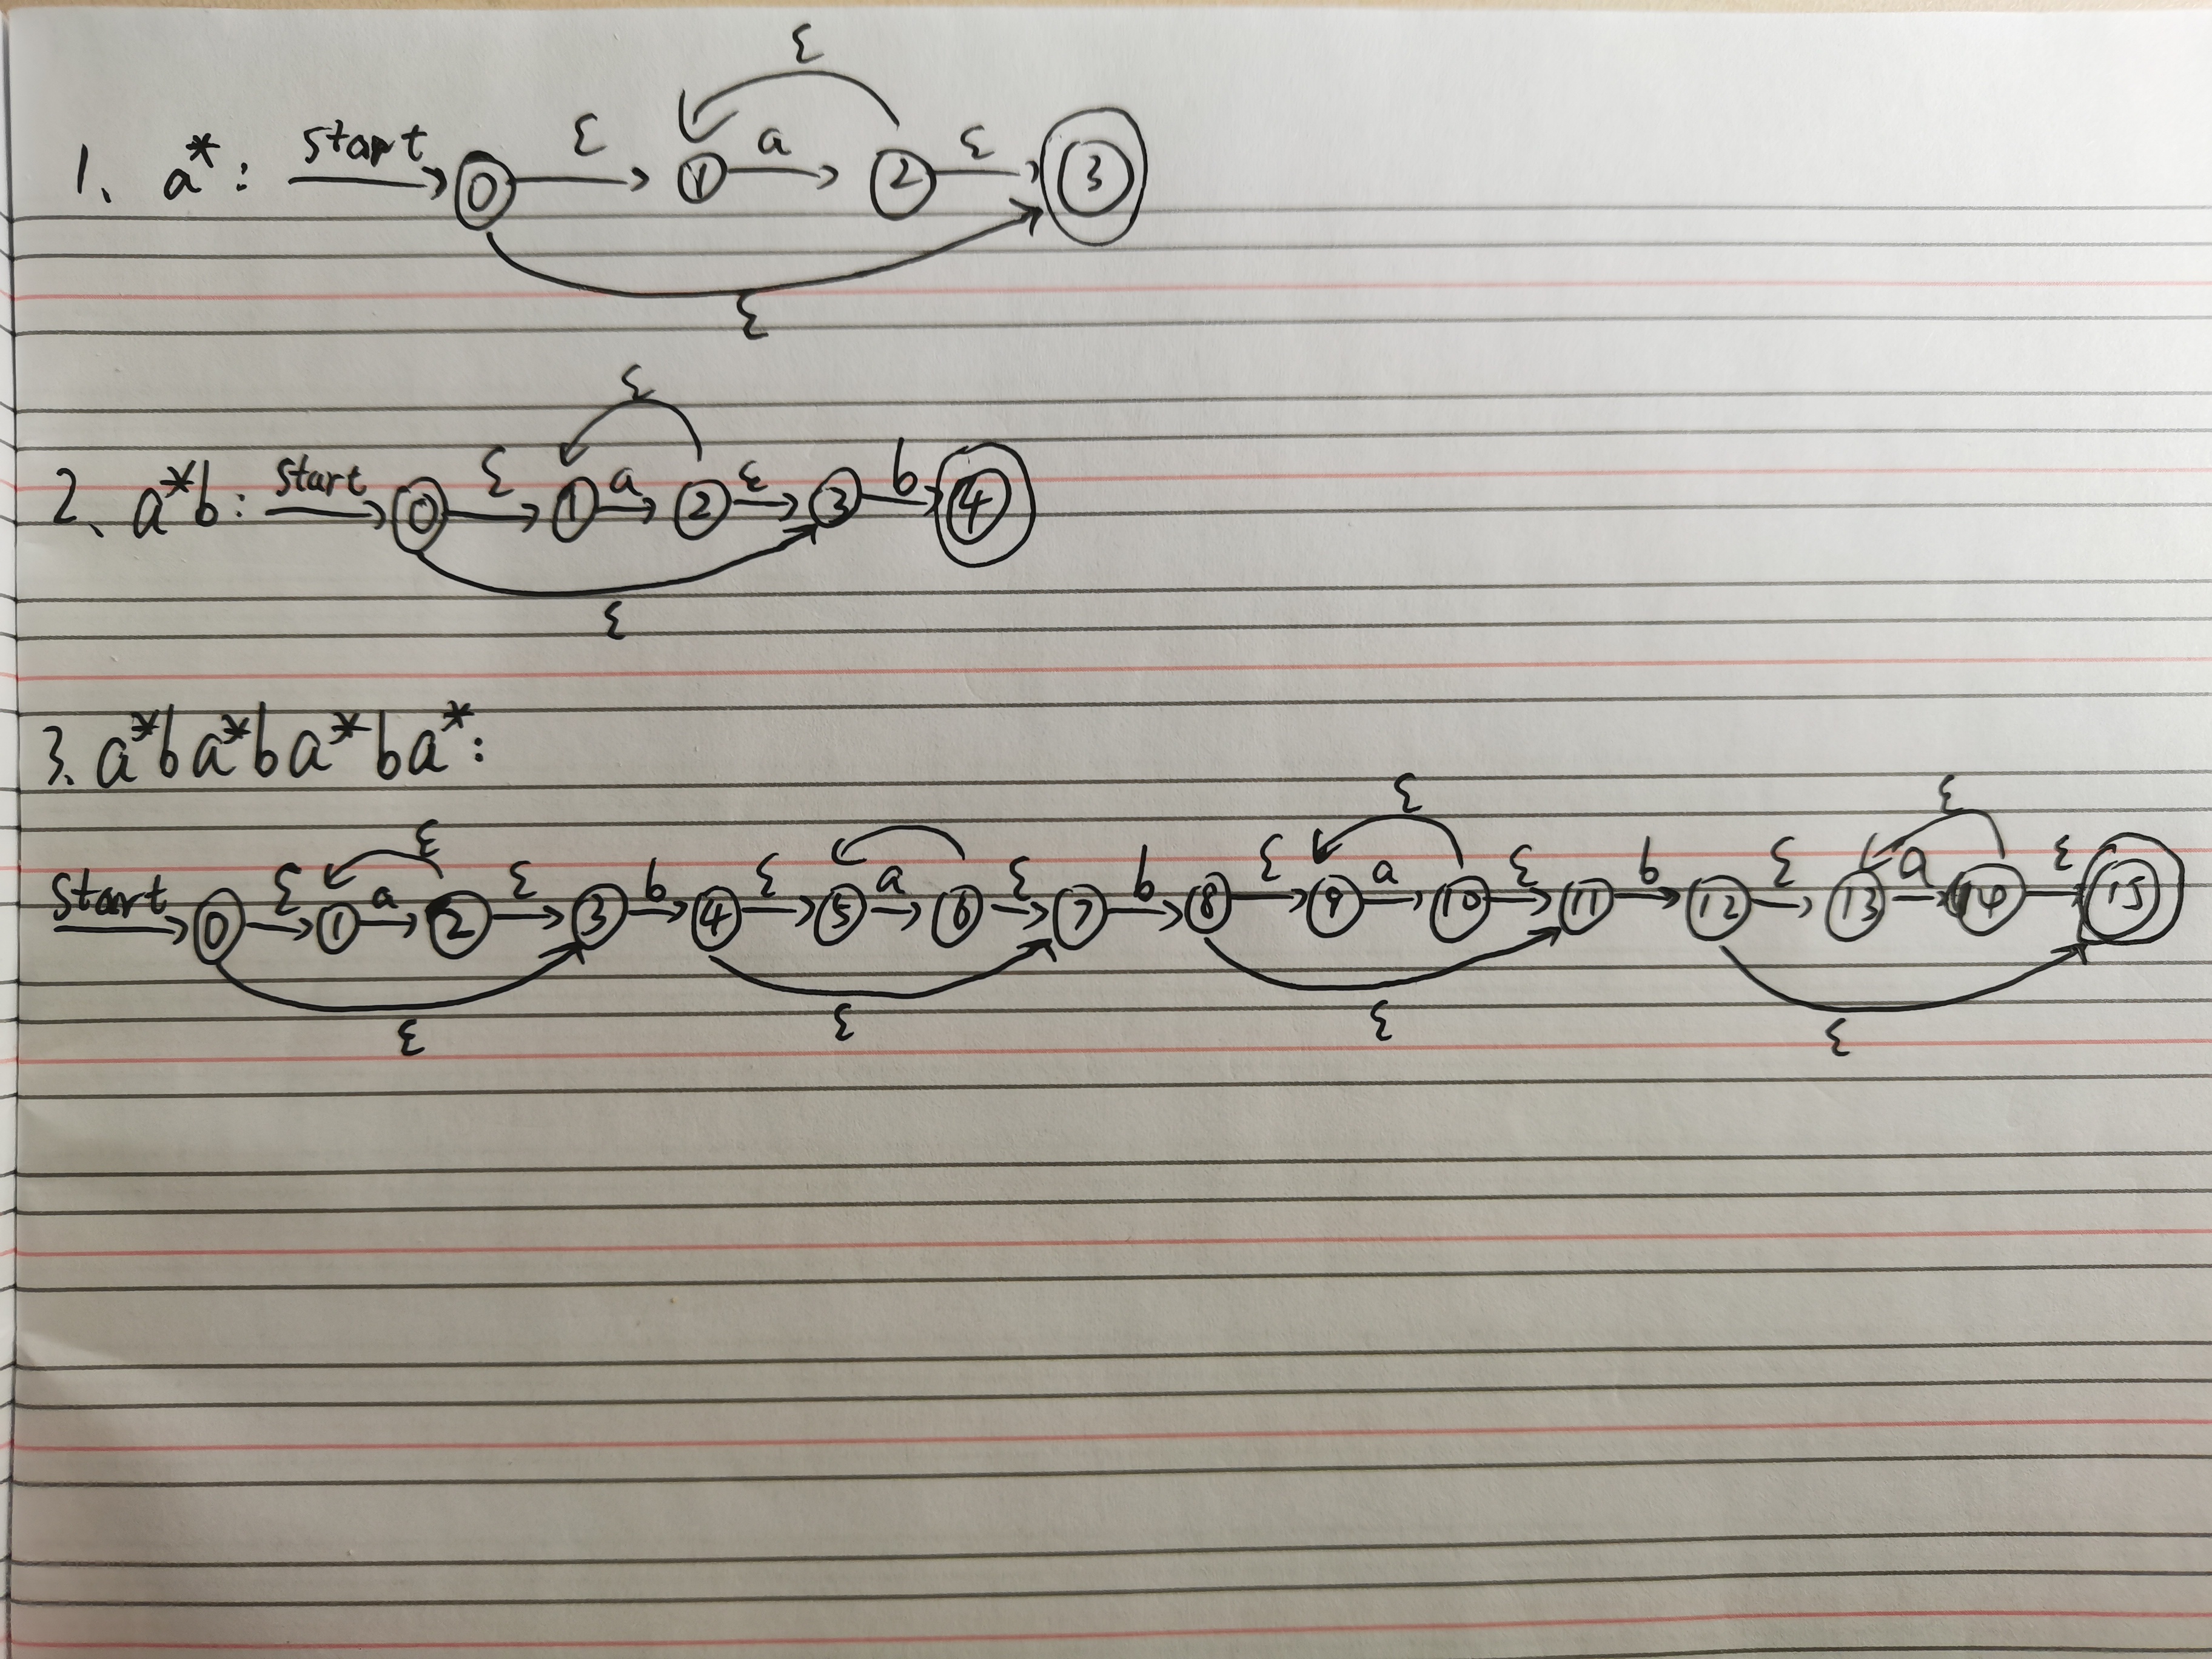 ε
1、 a*: start 0 ε 1 a 2 ε 3
ε
ε
2、 a*b: start 0 ε 1 a 2 ε 3 b 4
ε
3、 a*ba*ba*ba*:
ε ε ε
start 0 ε 1 a 2 ε 3 b 4 ε 5 a 6 ε 7 b 8 ε 9 a 10 ε 11 b 12 ε 13 a 14 ε 15
ε ε ε ε